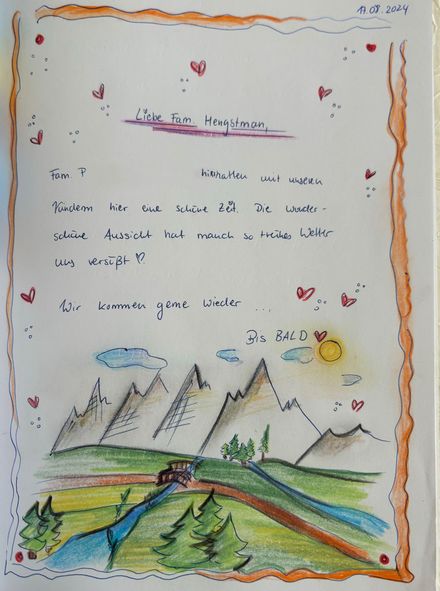 17.08.2024
Liebe Fam. Hengstman,
Fam. P hatten mit unseren
Kindern hier eine schöne Zeit. Die wunder-
schöne Aussicht hat manch so trübes Wetter
uns versüßt
Wir kommen gerne wieder ...
Bis BALD